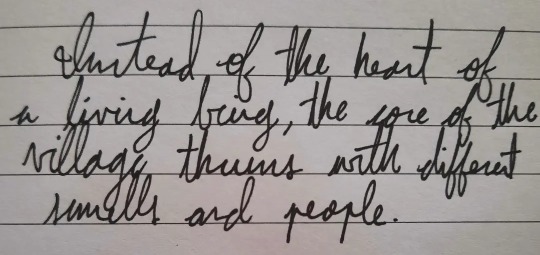 Instead of the heart of
a living being, the core of the
village thums with different
smells and people.